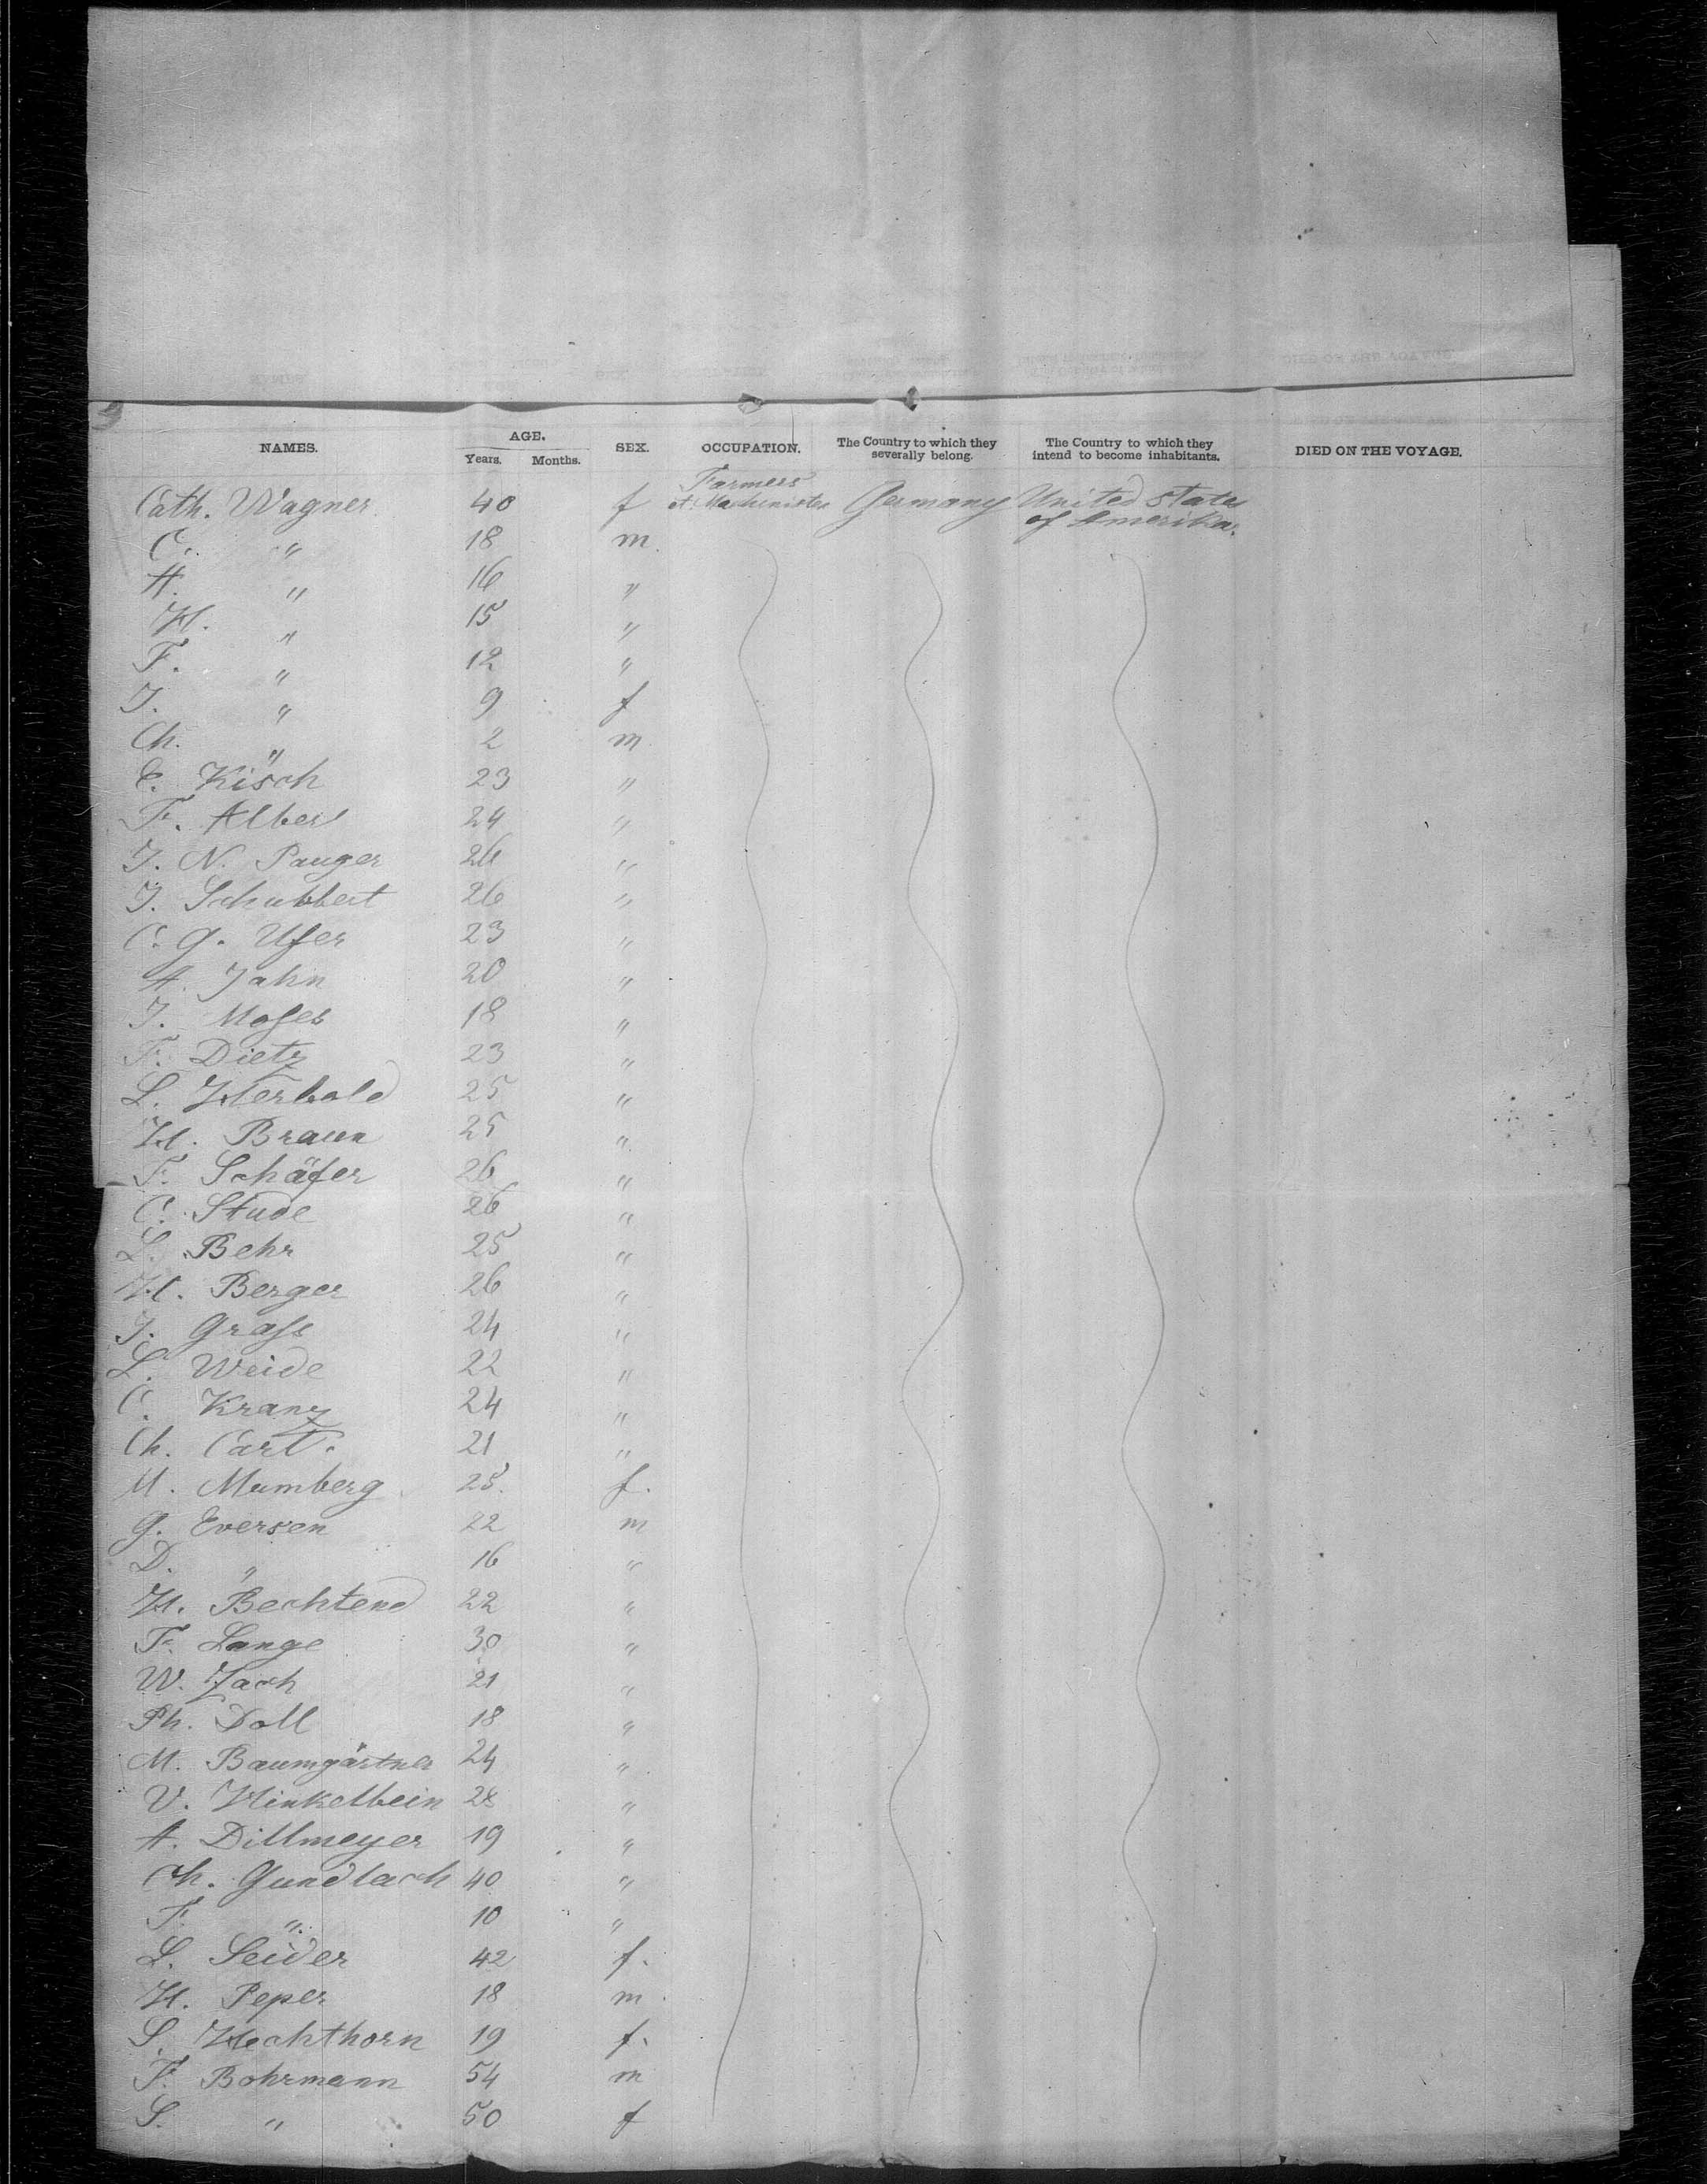 NAMES. AGE. SEX. OCCUPATION. The Country to which they severally belong. The Country to which they intend to become inhabitants. DIED ON THE VOYAGE.
Years. Months.
Cath. Wagner 40 f Farmers et Machinistes Germany United States of Amerika.
C. " 18 m.
A. " 16 "
H. " 15 "
F. " 12 "
J. " 9 f
Ch. " 2 m
C. Kisch 23 "
F. Albert 24 "
J. N. Pauger 26 "
J. Schubbert 26 "
C. G. Ufer 23 "
A. Jahn 20 "
J. Moses 18 "
F. Dietz 23 "
L. Herbold 25 "
H. Braun 25 "
F. Schäfer 26 "
C. Stude 26 "
L. Behr 25 "
H. Berger 26 "
J. Grafs 24 "
L. Weide 22 "
C. Kranz 24 "
Ch. Cart. 21 "
M. Mumberg 25. f.
G. Eversen 22 m
D. " 16 "
H. Bechtend 22 "
F. Lange 30 "
W. Zach 21 "
Ph. Doll 18 "
M. Baumgärtner 24 "
V. Hinkelbein 28 "
A. Dillmeyer 19 "
Ch. Gundlach 40 "
F. " 10 "
L. Seider 42 f.
H. Peper 18 m
S. Hechthorn 19 f.
F. Bohrmann 54 m
S. " 50 f